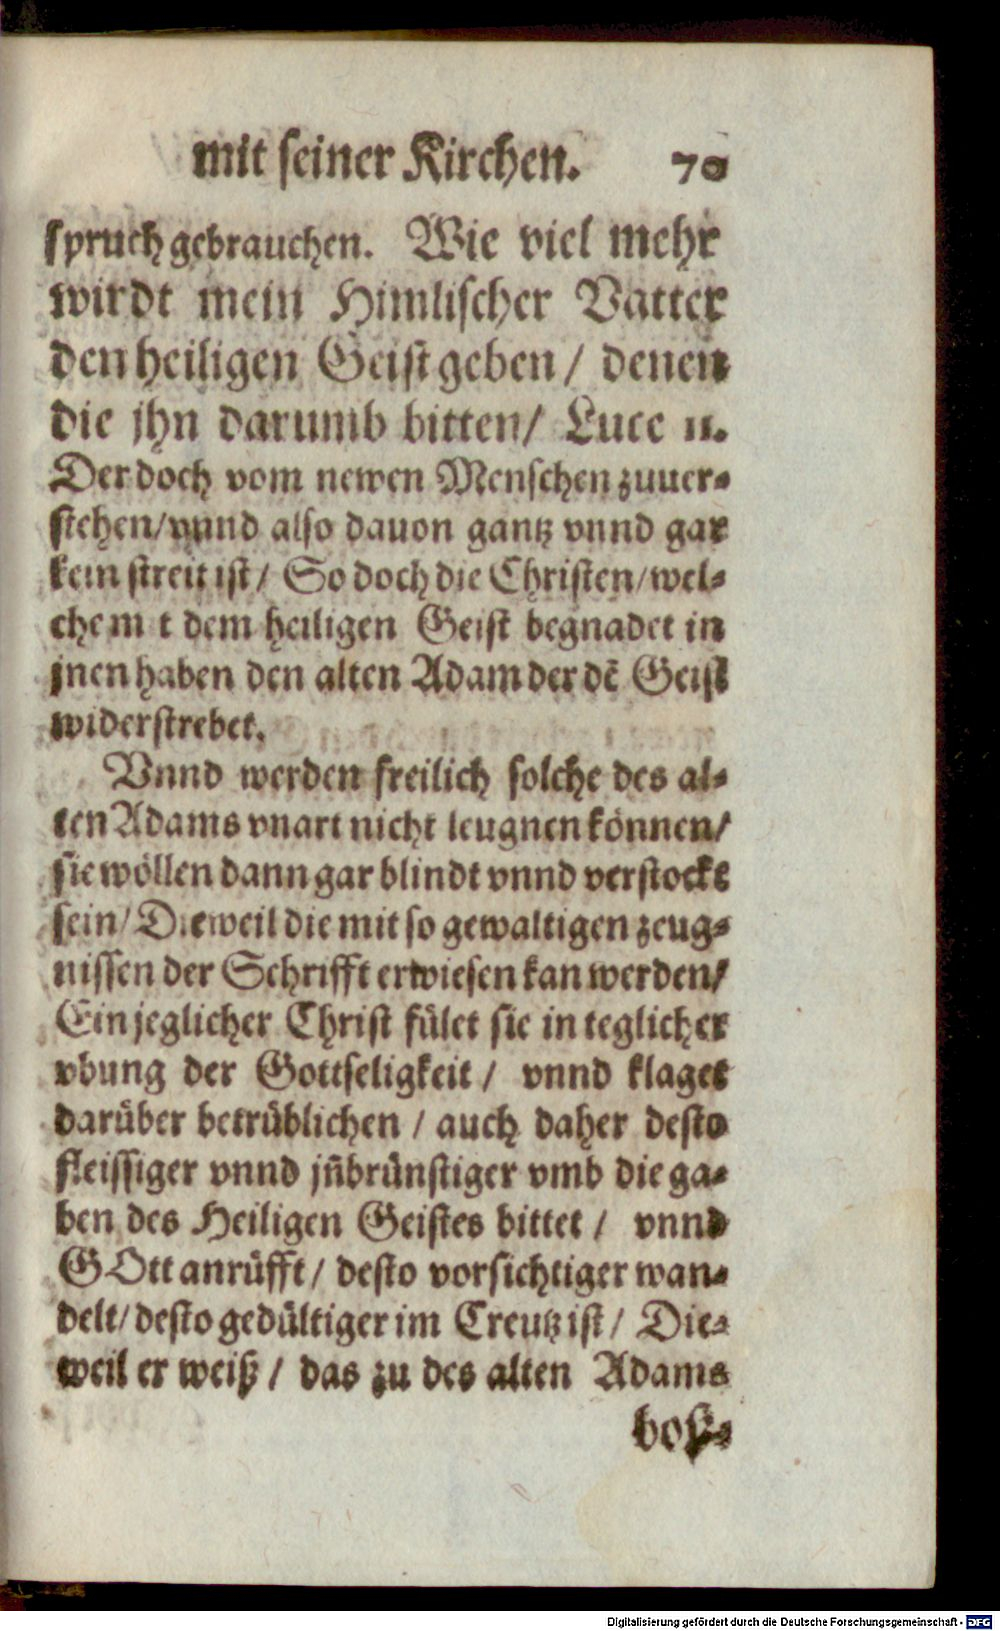 mit seiner Kirchen. 70
spruch gebrauchen. Wie viel mehr
wirdt mein Himlischer Vatter
den heiligen Geist geben / denen
die jhn darumb bitten / Luce 11.
Der doch vom newen Menschen zuuer⸗
stehen / vnnd also dauon gantz vnnd gar
kein streit ist / So doch die Christen / wel⸗
che m t dem heiligen Geist begnadet in
jnen haben den alten Adam der dē Geist
widerstrebet.
Vnnd werden freilich solche des al⸗
ten Adams vnart nicht leugnen können /
sie wöllen dann gar blindt vnnd verstockt
sein / Dieweil die mit so gewaltigen zeug⸗
nissen der Schrifft erwiesen kan werden /
Ein jeglicher Christ fület sie in teglicher
vbung der Gottseligkeit / vnnd klaget
darüber betrüblichen / auch daher desto
fleissiger vnnd jn̄brünstiger vmb die ga⸗
ben des Heiligen Geistes bittet / vnnd
GOtt anrüfft / desto vorsichtiger wan⸗
delt / desto gedültiger im Creutz ist / Die⸗
weil er weiß / das zu des alten Adams
boß⸗
Digitalisierung gefördert durch die Deutsche Forschungsgemeinschaft - DFG